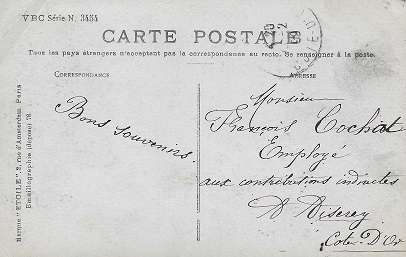 VBC Série N. 3434
CARTE POSTALE
Tous les pays étrangers n'acceptent pas la correspondance au recto. Se renseigner à la poste.
CORRESPONDANCE
ADRESSE
Bons souvenirs.
Monsieur
François Cochiot
Employé
aux contributions indirectes
A Aiserey
Côte-D'Or
Marque "ETOILE", 2, rue d'Amsterdam Paris
Emaillographie (déposé) 78.